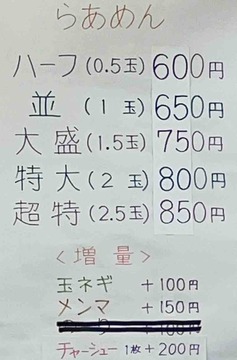 らあめん
ハーフ(0.5玉)600円
並(1玉)650円
大盛(1.5玉)750円
特大(2玉)800円
超特(2.5玉)850円
<増量>
玉ネギ +100円
メンマ +150円
チャーシュー1枚+200円